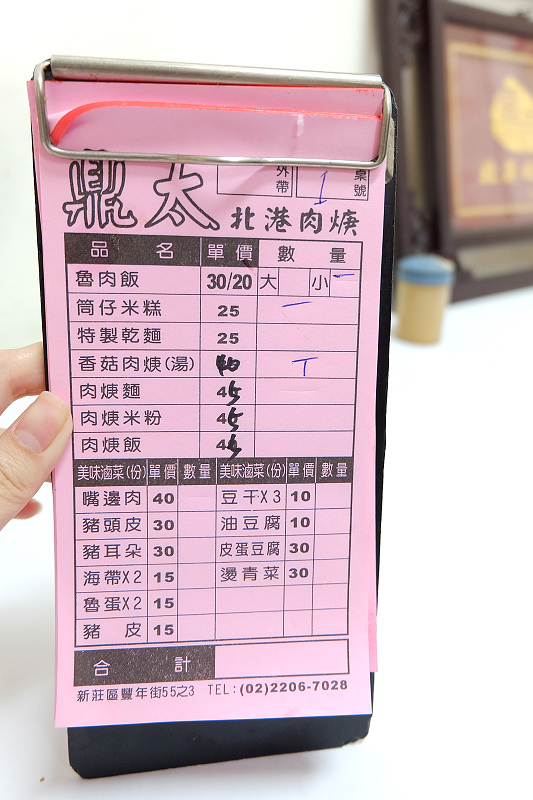 外帶 1 桌號
鼎太 北港肉焿
品名 單價 數量
魯肉飯 30/20 大 小 一
筒仔米糕 25 一
特製乾麵 25
香菇肉焿(湯) 40 T
肉焿麵 45
肉焿米粉 45
肉焿飯 45
美味滷菜(份) 單價 數量 美味滷菜(份) 單價 數量
嘴邊肉 40 豆干X3 10
豬頭皮 30 油豆腐 10
豬耳朵 30 皮蛋豆腐 30
海帶X2 15 燙青菜 30
魯蛋X2 15
豬皮 15
合計
新莊區豐年街55之3 TEL:(02)2206-7028